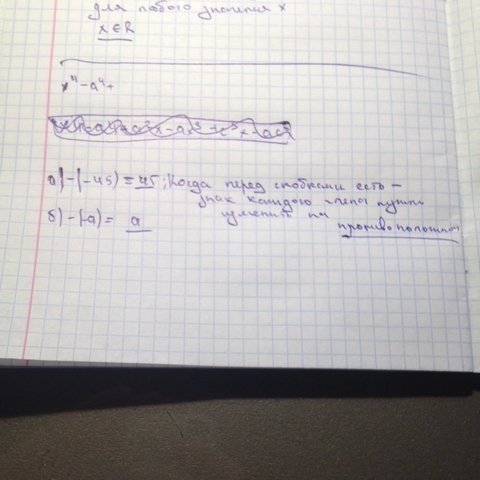 для любого значения x
x ∈ R
x⁴ - a⁴ +
а) -(-45) = 45; Когда перед скобками есть -
знак каждого члена нужно
изменить на
противоположный
б) -(-a) = a